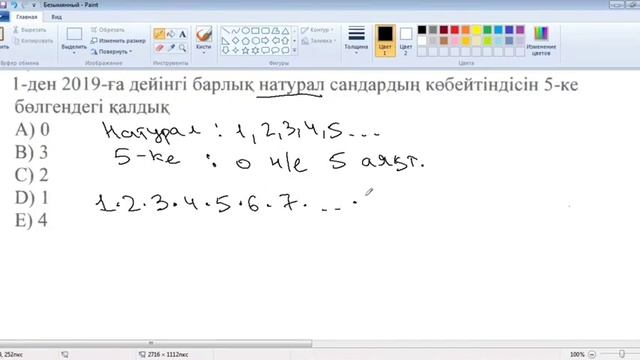 Безымянный - Paint
Главная
Вид
Вырезать
Копировать
Обрезать
Изменить размер
Повернуть
Выделить
Изображение
Инструменты
Контур
Заливка
Фигуры
Толщина
Цвет 1
Цвет 2
Цвета
Изменение цветов
1-ден 2019-ға дейінгі барлық натурал сандардың көбейтіндісін 5-ке
бөлгендегі қалдық
A) 0
B) 3
C) 2
D) 1
E) 4
Натурал : 1, 2, 3, 4, 5 ...
5-ке : 0 н/е 5 аяқт.
1·2·3·4·5·6·7· ... ·
2716 × 1112пкс
100%